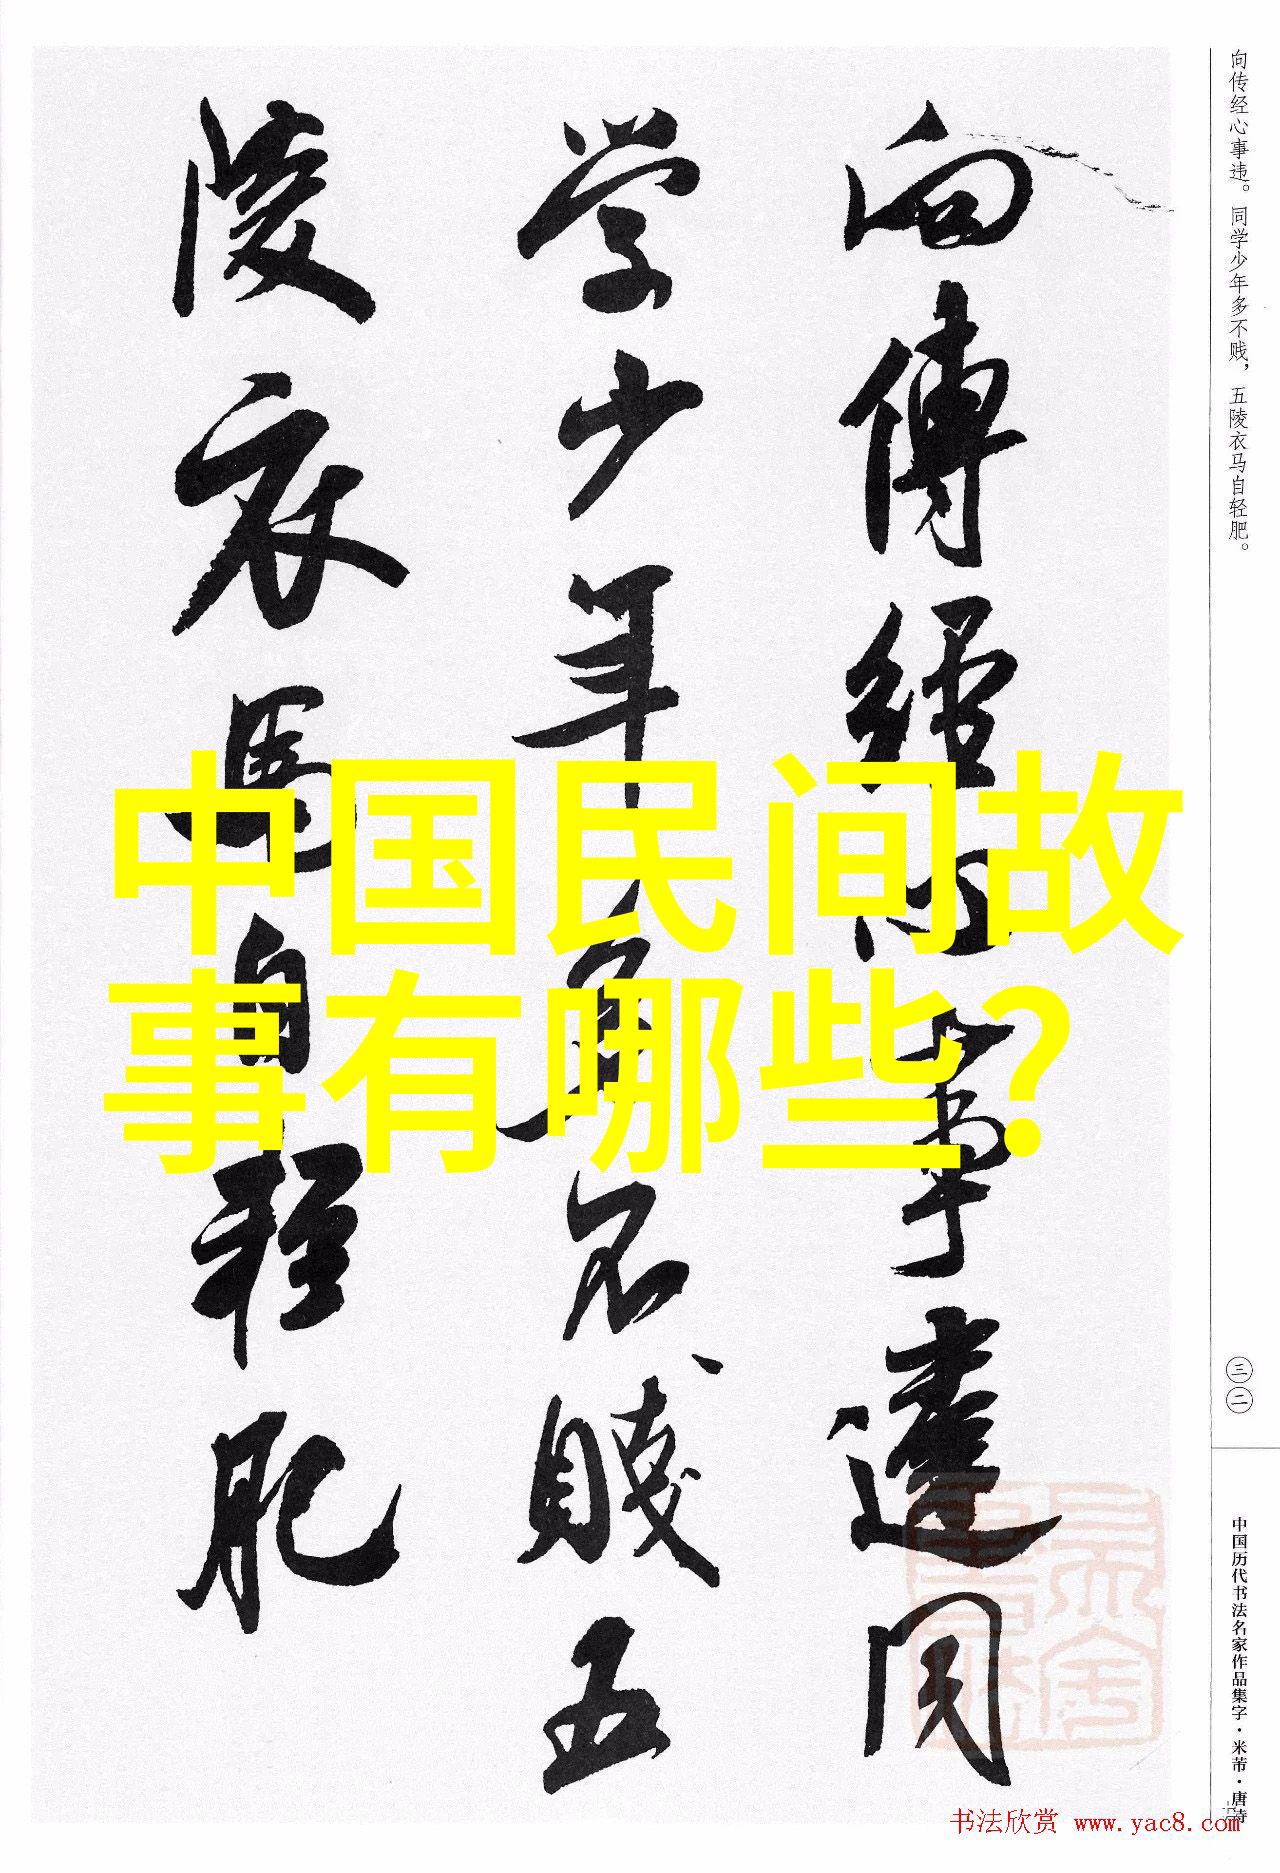 向传经心事违。同学少年多不贱，五陵衣马自轻肥。
向傳經心事違同
学少年多不賤五
陵衣馬自轻肥
中国民间故
事有哪些?
三二
中国历代书法名家作品集字·米芾·唐诗
书法欣赏 www.yac8.com